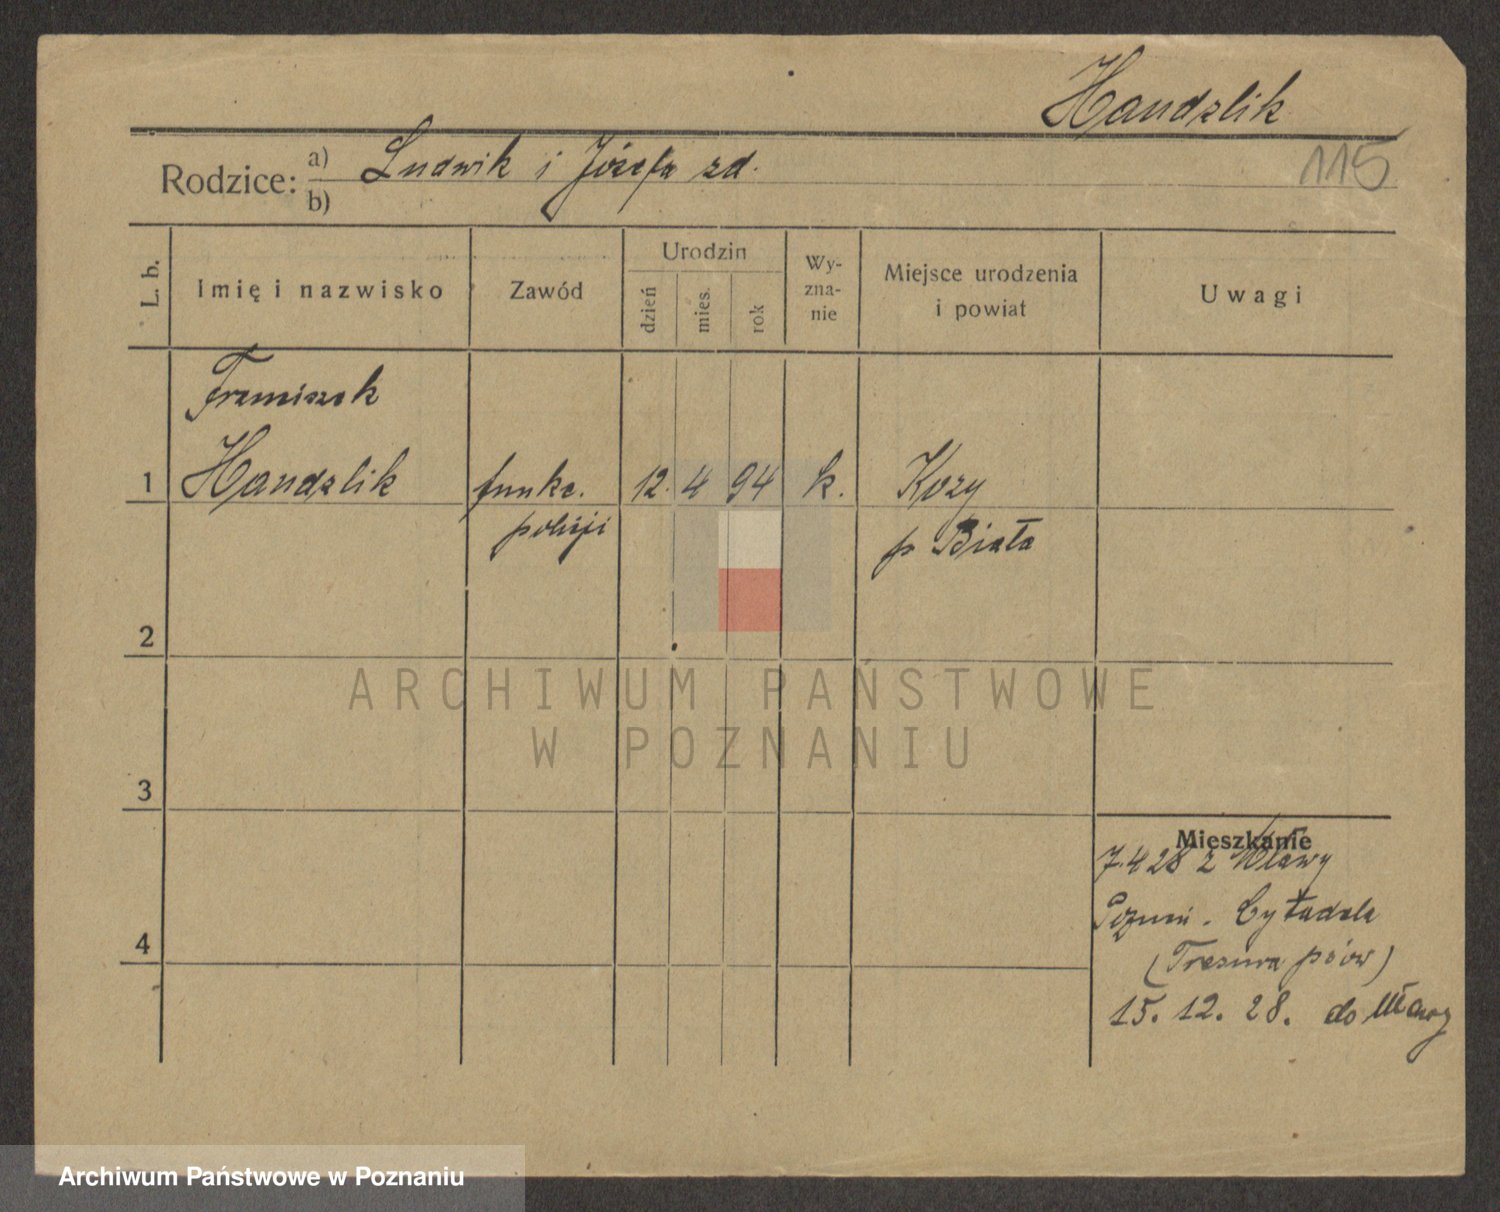 Handzlik
115
Rodzice: a) Ludwik i Józefa zd.
b)
L. b.
Imię i nazwisko
Zawód
Urodzin
dzień
mies.
rok
Wy-
zna-
nie
Miejsce urodzenia
i powiat
Uwagi
Franciszek
1 Handzlik funkc. 12. 4 94 k. Kozy
policji p Biała
2
3
4
Mieszkanie
7.4 28 z Mławy
Poznań. Cytadela
(Tresura psów)
15. 12. 28. do Mławy
ARCHIWUM PAŃSTWOWE
W POZNANIU
Archiwum Państwowe w Poznaniu